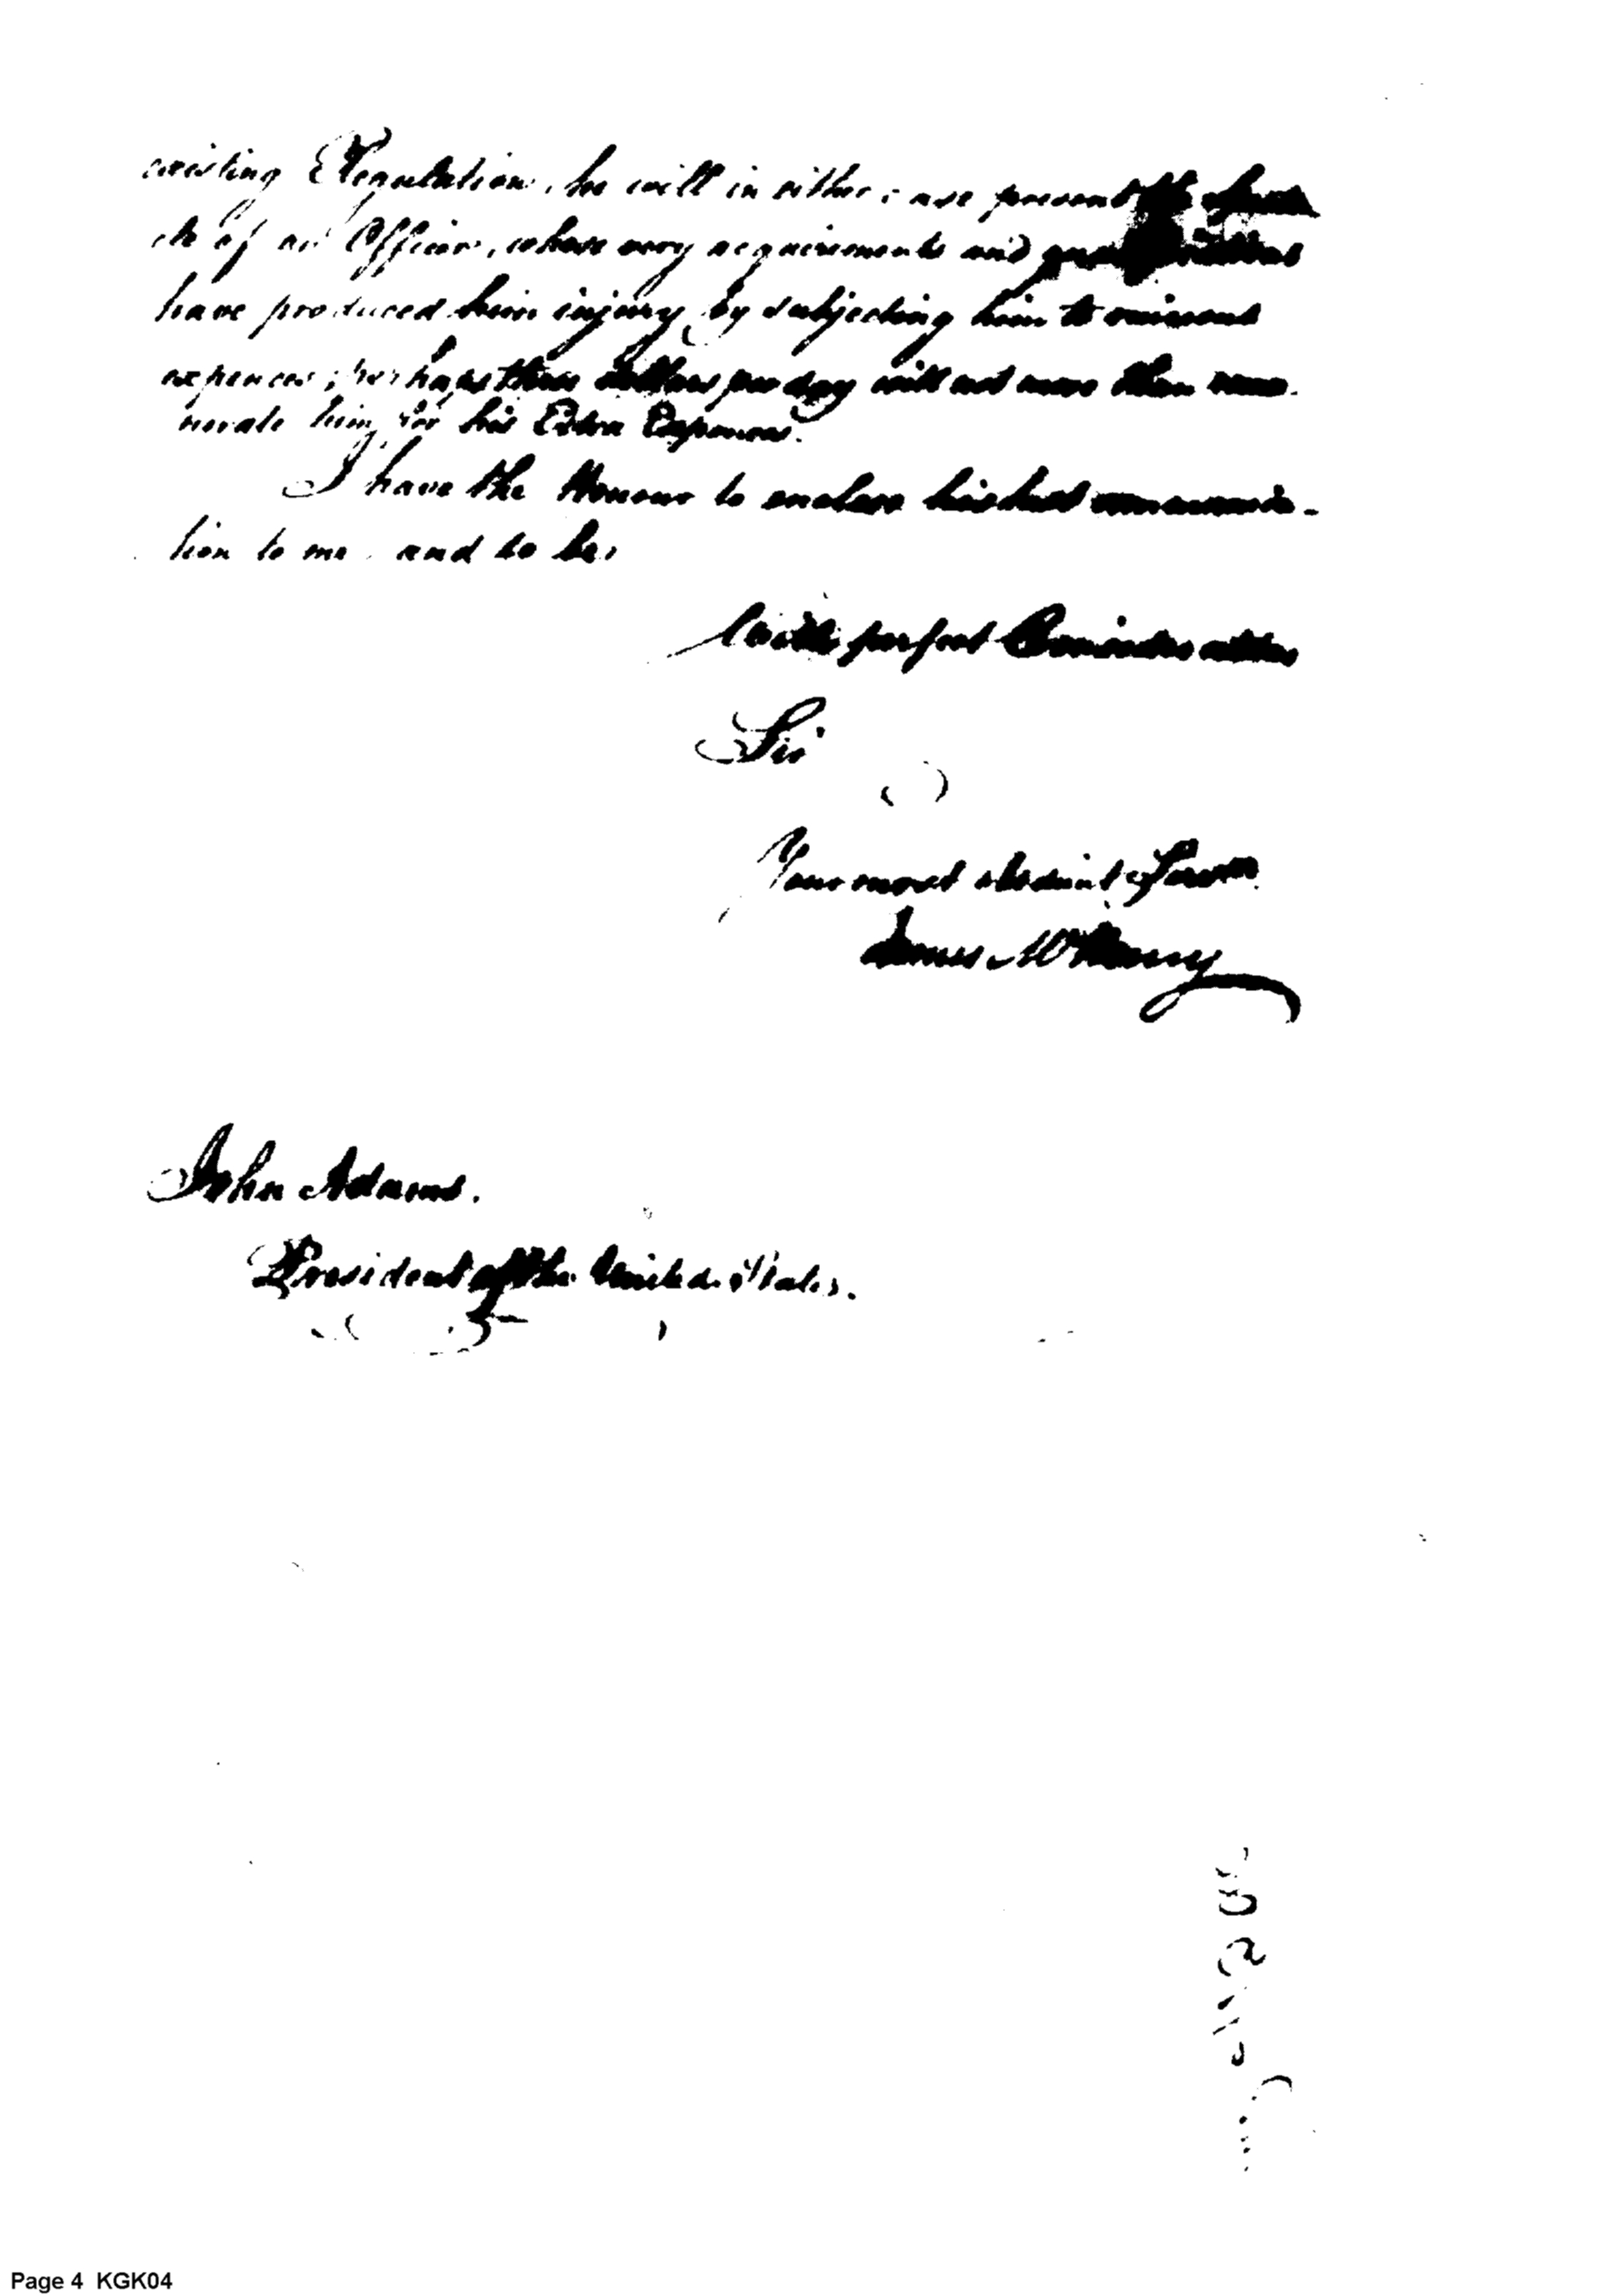 existing Regulation, he will in either case present the
of an Officer, whose very acquirements and
have produced him injury by subjecting him to ruinous
expences; perhaps three dollars per day will not more than remu-
nerate him for his Extra Expences.
I have the Honour to enclose his last communica-
tion to me and to be,
With perfect
Sir
Your most obedient Servt.
James McHenry
John Adams.
President of the United States.
Page 4 KGK04